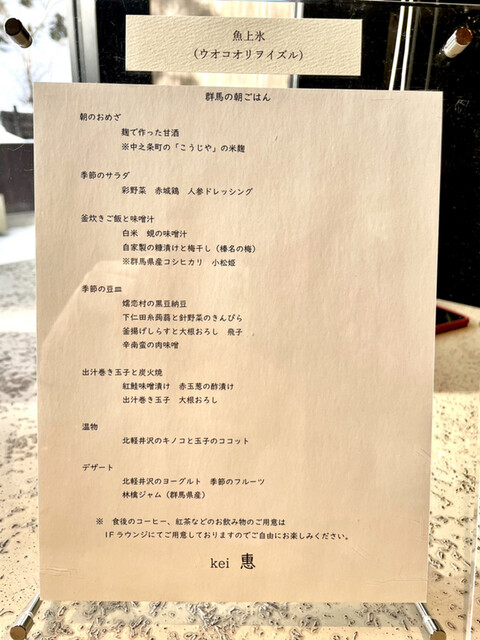 魚上氷
(ウオコオリヲイズル)
群馬の朝ごはん
朝のおめざ
麹で作った甘酒
※中之条町の「こうじや」の米麹
季節のサラダ
彩野菜 赤城鶏 人参ドレッシング
釜炊きご飯と味噌汁
白米 蜆の味噌汁
自家製の糠漬けと梅干し(榛名の梅)
※群馬県産コシヒカリ 小松姫
季節の豆皿
嬬恋村の黒豆納豆
下仁田糸蒟蒻と針野菜のきんぴら
釜揚げしらすと大根おろし 飛子
辛南蛮の肉味噌
出汁巻き玉子と炭火焼
紅鮭味噌漬け 赤玉葱の酢漬け
出汁巻き玉子 大根おろし
温物
北軽井沢のキノコと玉子のココット
デザート
北軽井沢のヨーグルト 季節のフルーツ
林檎ジャム(群馬県産)
※ 食後のコーヒー、紅茶などのお飲み物のご用意は
1Fラウンジにてご用意しておりますのでご自由にお楽しみください。
kei 惠